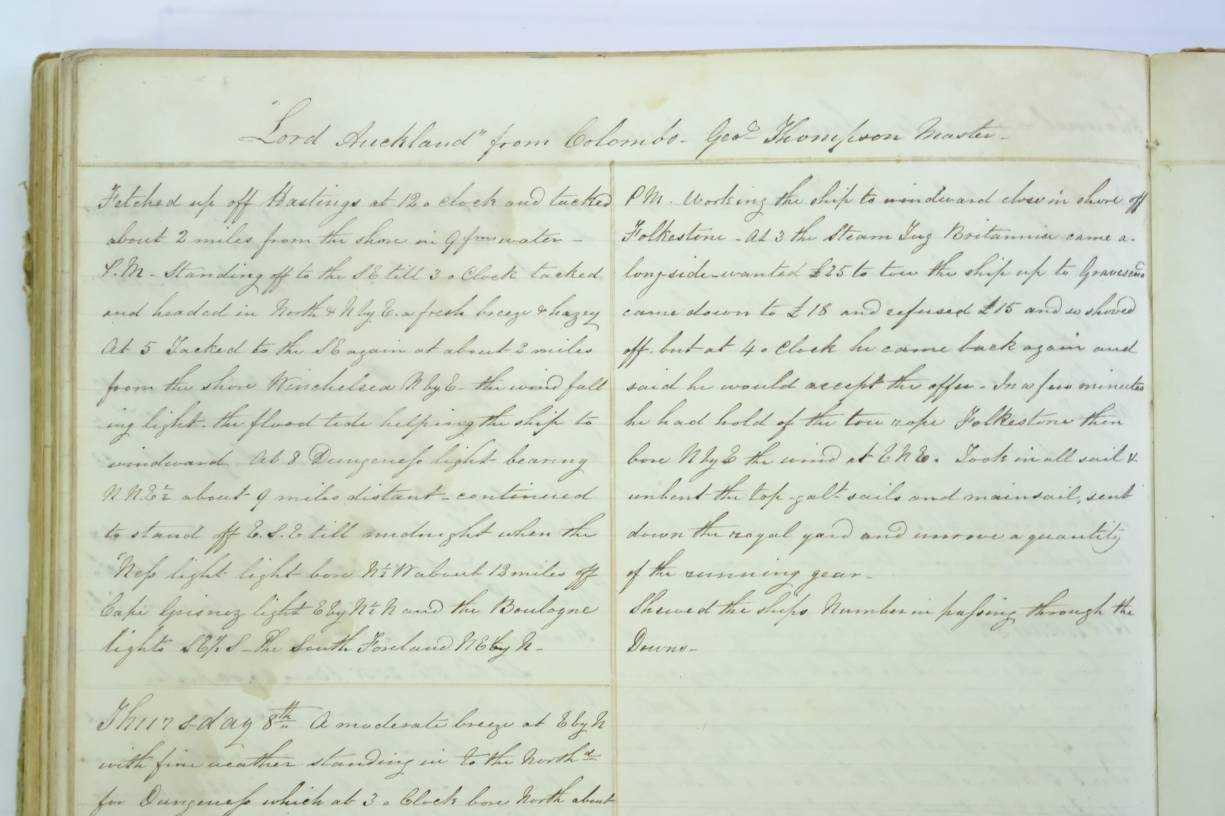 "Lord Auckland" from Colombo - Geo. Thompson Master -
Fetched up off Hastings at 12 o clock and tacked
about 2 miles from the shore in 9 fm water -
P.M - Standing off to the SE till 3 o Clock tacked
and headed in North & N by E. a fresh breeze & hazey
At 5 Tacked to the SE again at about 2 miles
from the shore Winchelsea N by E - the wind fall
ing light. the flood tide helping the ship to
windward At 8 Dungeness light bearing
about 9 miles distant - continued
to stand off E.S.E till midnight when the
Ness light light bore about 13 miles off
Cape Grisnez light E by and the Boulogne
lights - The South Foreland NE by N -
Thursday 8th A moderate breeze at E by N
with fine weather standing in to the North'd
for Dungeness which at 3 o Clock bore North about
P M - Working the ship to windward close in shore off
Folkestone - At 3 the Steam Tug Britannia came a-
longside - wanted £25 to tow the ship up to
came down to £18 and refused £15 and so shoved
off - but at 4 o Clock he came back again and
said he would accept the offer - In a few minutes
he had hold of the tow rope Folkestone then
bore N by E the wind at E N E. Took in all sail &
unbent the top galt sails and mainsail, sent
down the royal yard and unrove a quantity
of the running gear -
Shewed the ships Number in passing through the
Downs -